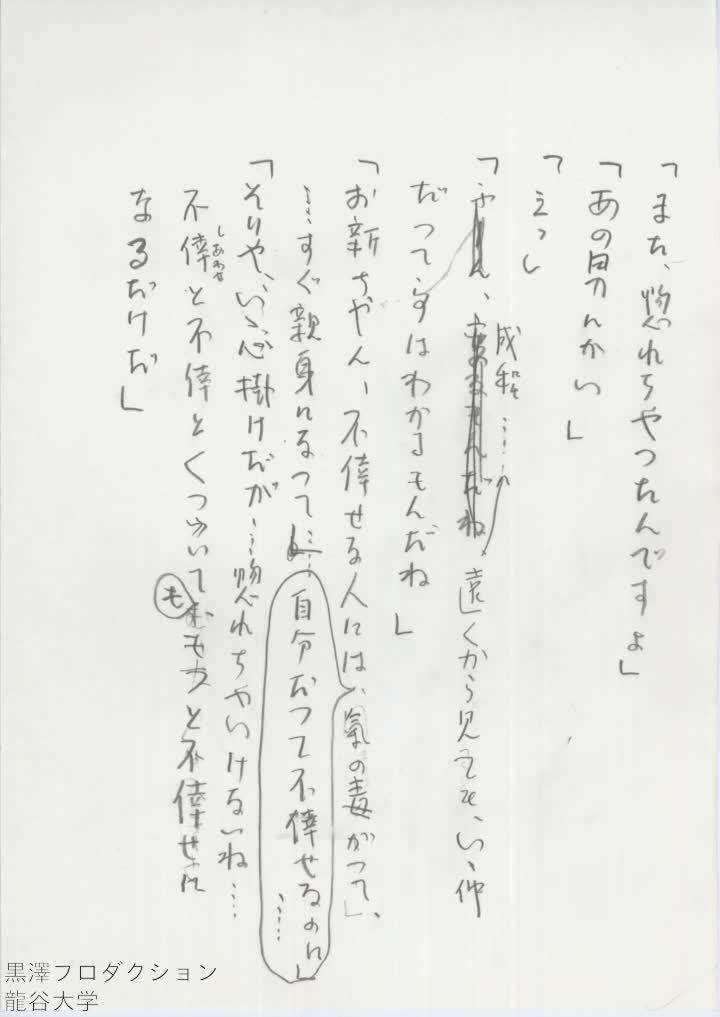 「また、惚れちやつたんですよ」
「あの男んかい」
「えつ」
「成程……遠くから見ても、いゝ仲
だつてらずはわかるもんだね」
「お新ちやん、不倖せな人には、氣の毒がつて、
……すぐ親身になつて……自分だつて不倖せなのに……」
「そりや、いゝ心掛けだが……惚れちやいけないね……
不倖と不倖とくつゝいても もつと不倖せに
しあわせ
なるだけだ」
黒澤プロダクション
龍谷大学